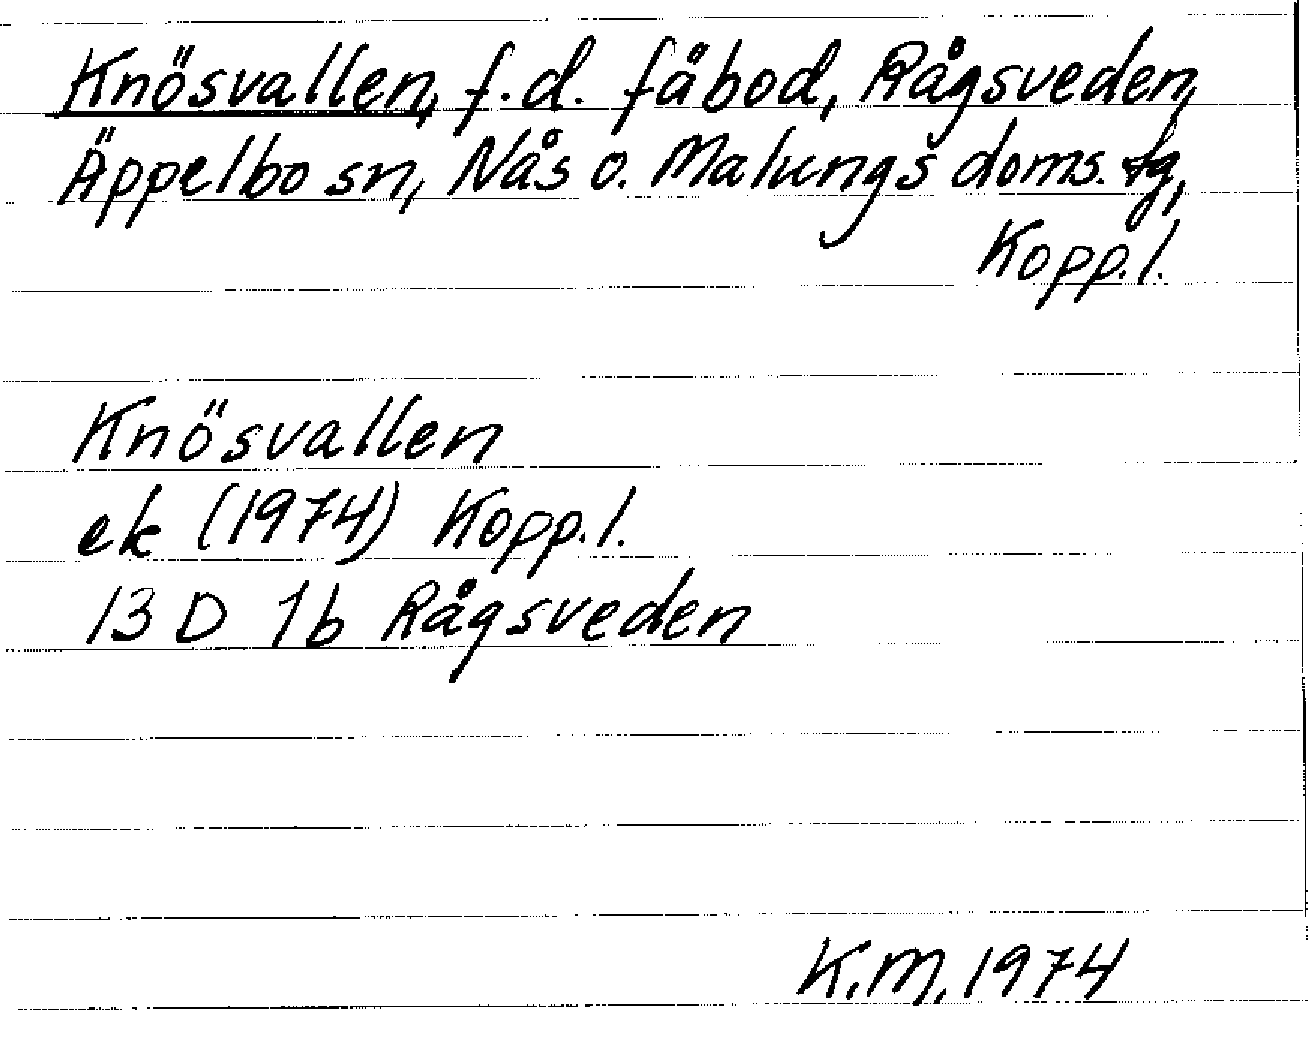 Knösvallen, f.d. fäbod, Rågsveden,
Äppelbo sn, Nås o. Malungs doms. tg,
Kopp.l.
Knösvallen
ek (1974) Kopp.l.
13 D 1b Rågsveden
K.M. 1974